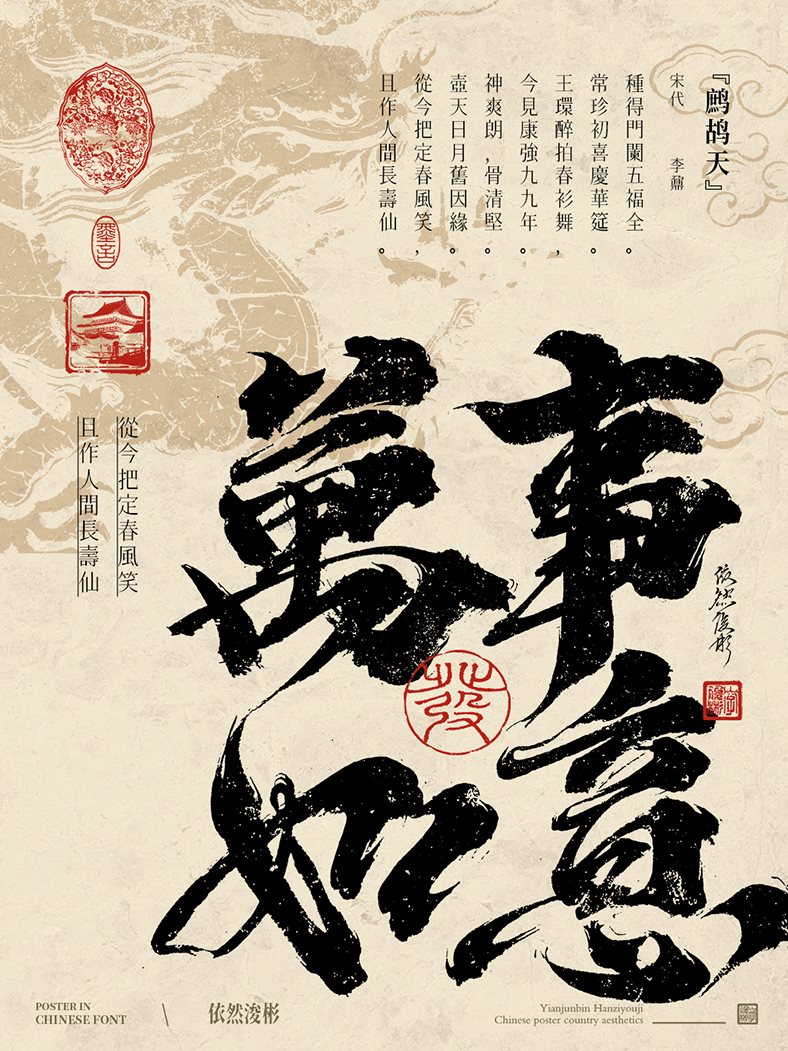 『鹧鸪天』
宋代 李鼐
種得門闌五福全。
常珍初喜慶華筵。
王環醉拍春衫舞，
今見康強九九年。
神爽朗，骨清堅。
壺天日月舊因緣。
從今把定春風笑，
且作人間長壽仙。
墨言
從今把定春風笑
且作人間長壽仙
萬事
如意
發
依然浚彬
POSTER IN
CHINESE FONT
\
依然浚彬
Yianjunbin Hanziyouji
Chinese poster country aesthetics